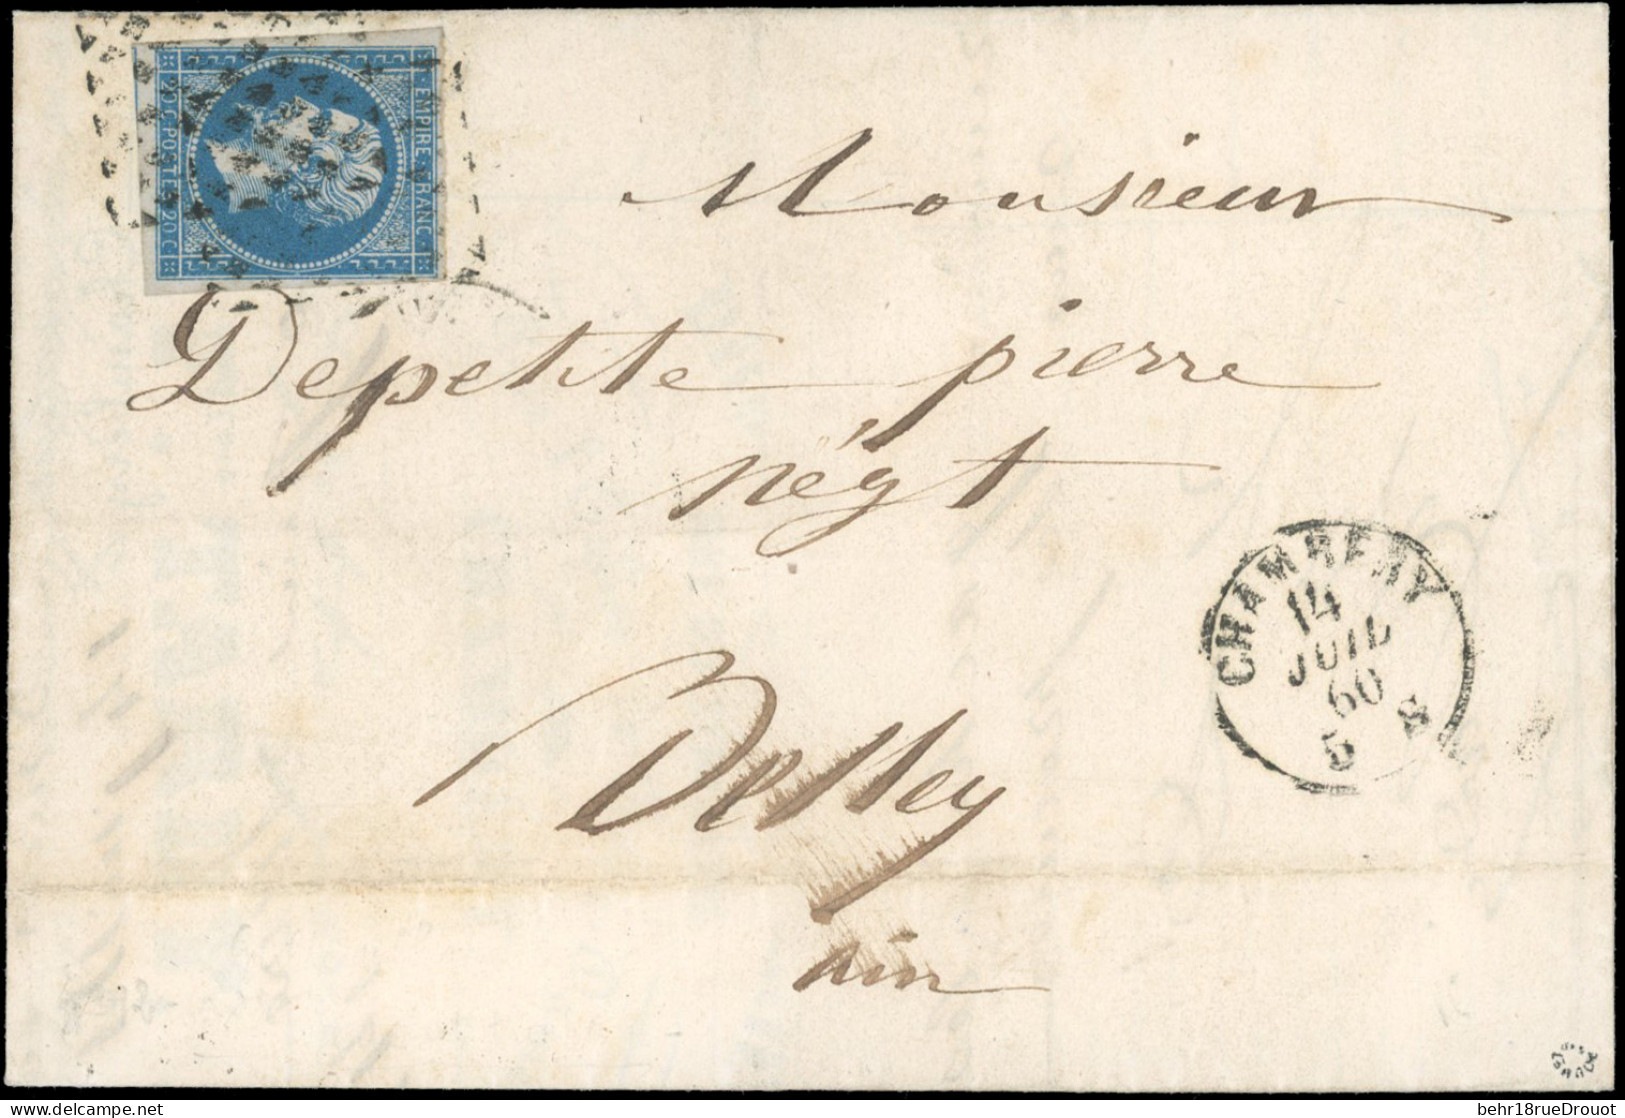 EMPIRE FRANC
20 C. POSTES 20 C.
Monsieur
Depetite pierre
négt
CHAMBERY
14
JUIL
60
5 S
Belley
ain
behr18rueDrouot